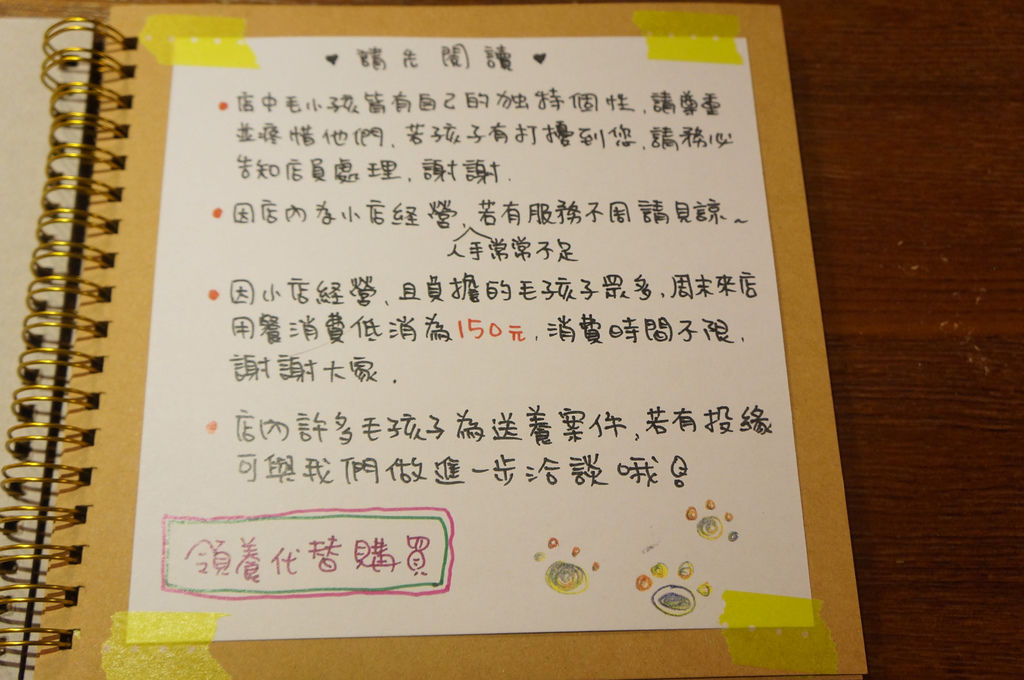 ♥ 請先閱讀 ♥
• 店中毛小孩皆有自己的独特個性,請尊重
並疼惜他們,若孩子有打擾到您,請務必
告知店員處理,謝謝.
• 因店內為小店経營,若有服務不周請見諒~
人手常常不足
• 因小店経營,且負擔的毛孩子眾多,周末來店
用餐消費低消為150元,消費時間不限,
謝謝大家.
• 店內許多毛孩子為送養案件,若有投緣
可與我們做進一步洽談哦!
領養代替購買